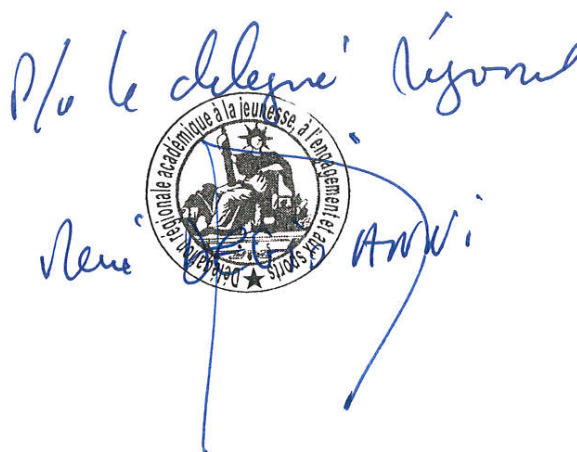 P/o le délégué régional
Délégation régionale académique à la jeunesse, à l'engagement et aux sports
René DEGIOANNI